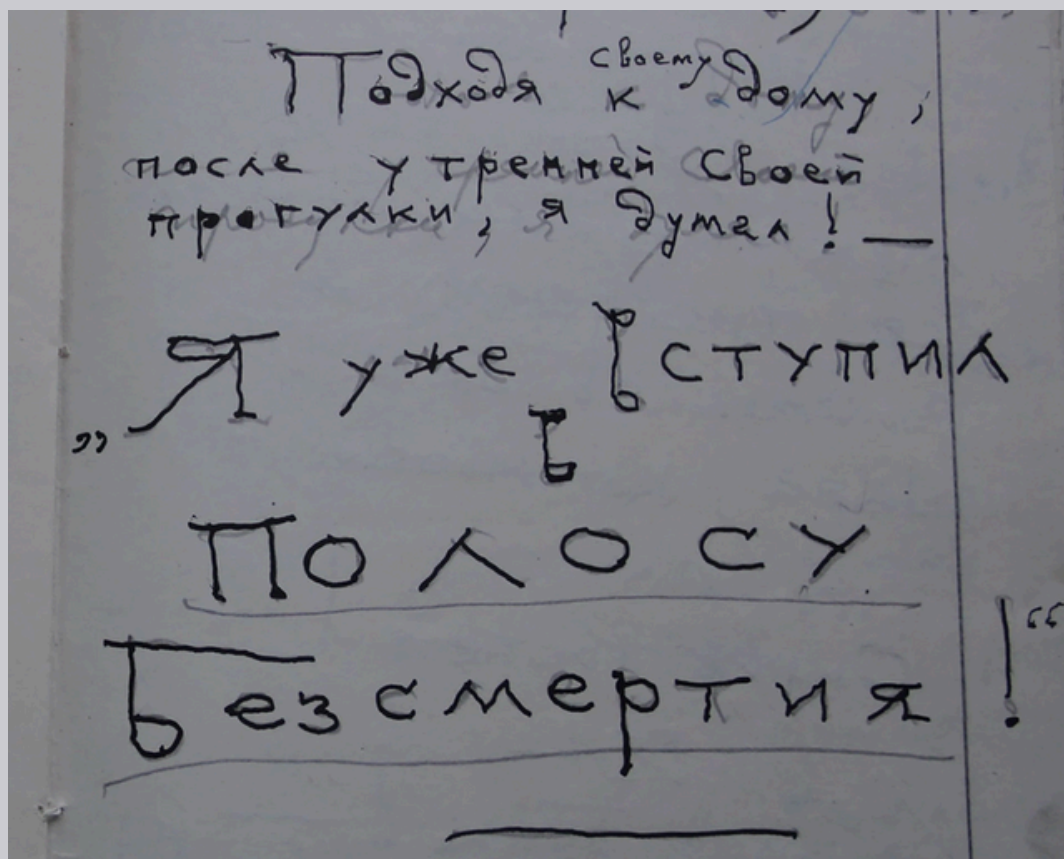 Подходя к своему дому,
после утренней своей
прогулки, я думал! —
„Я уже вступил
в
Полосу
Безсмертия!“